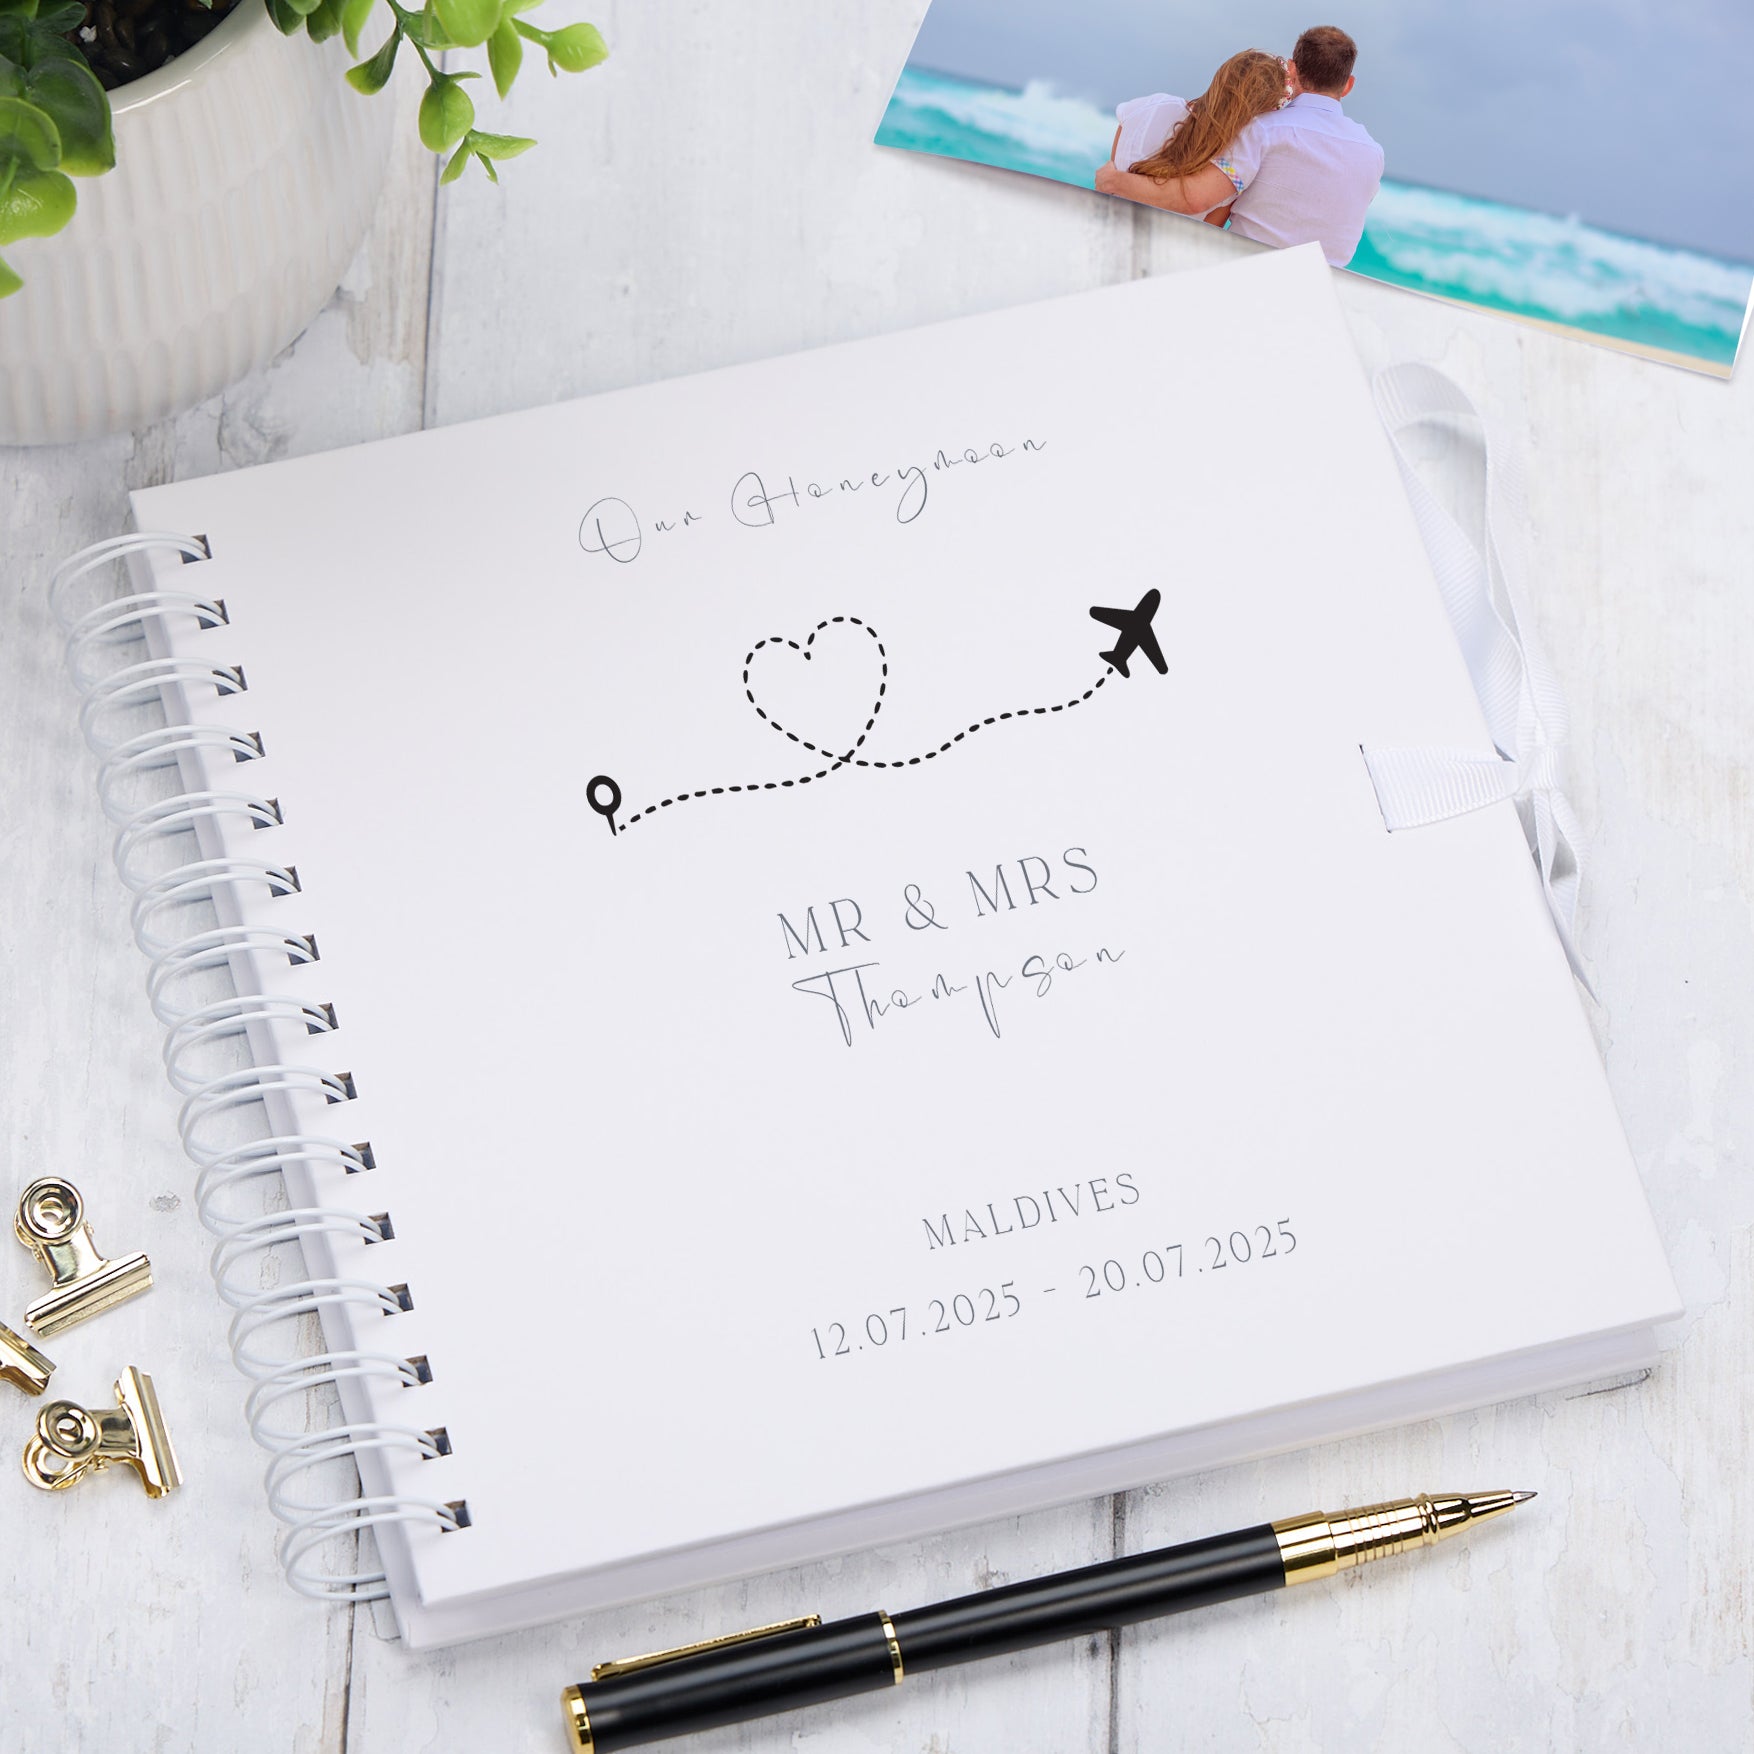 Our Honeymoon
MR & MRS
Thompson
MALDIVES
12.07.2025 - 20.07.2025